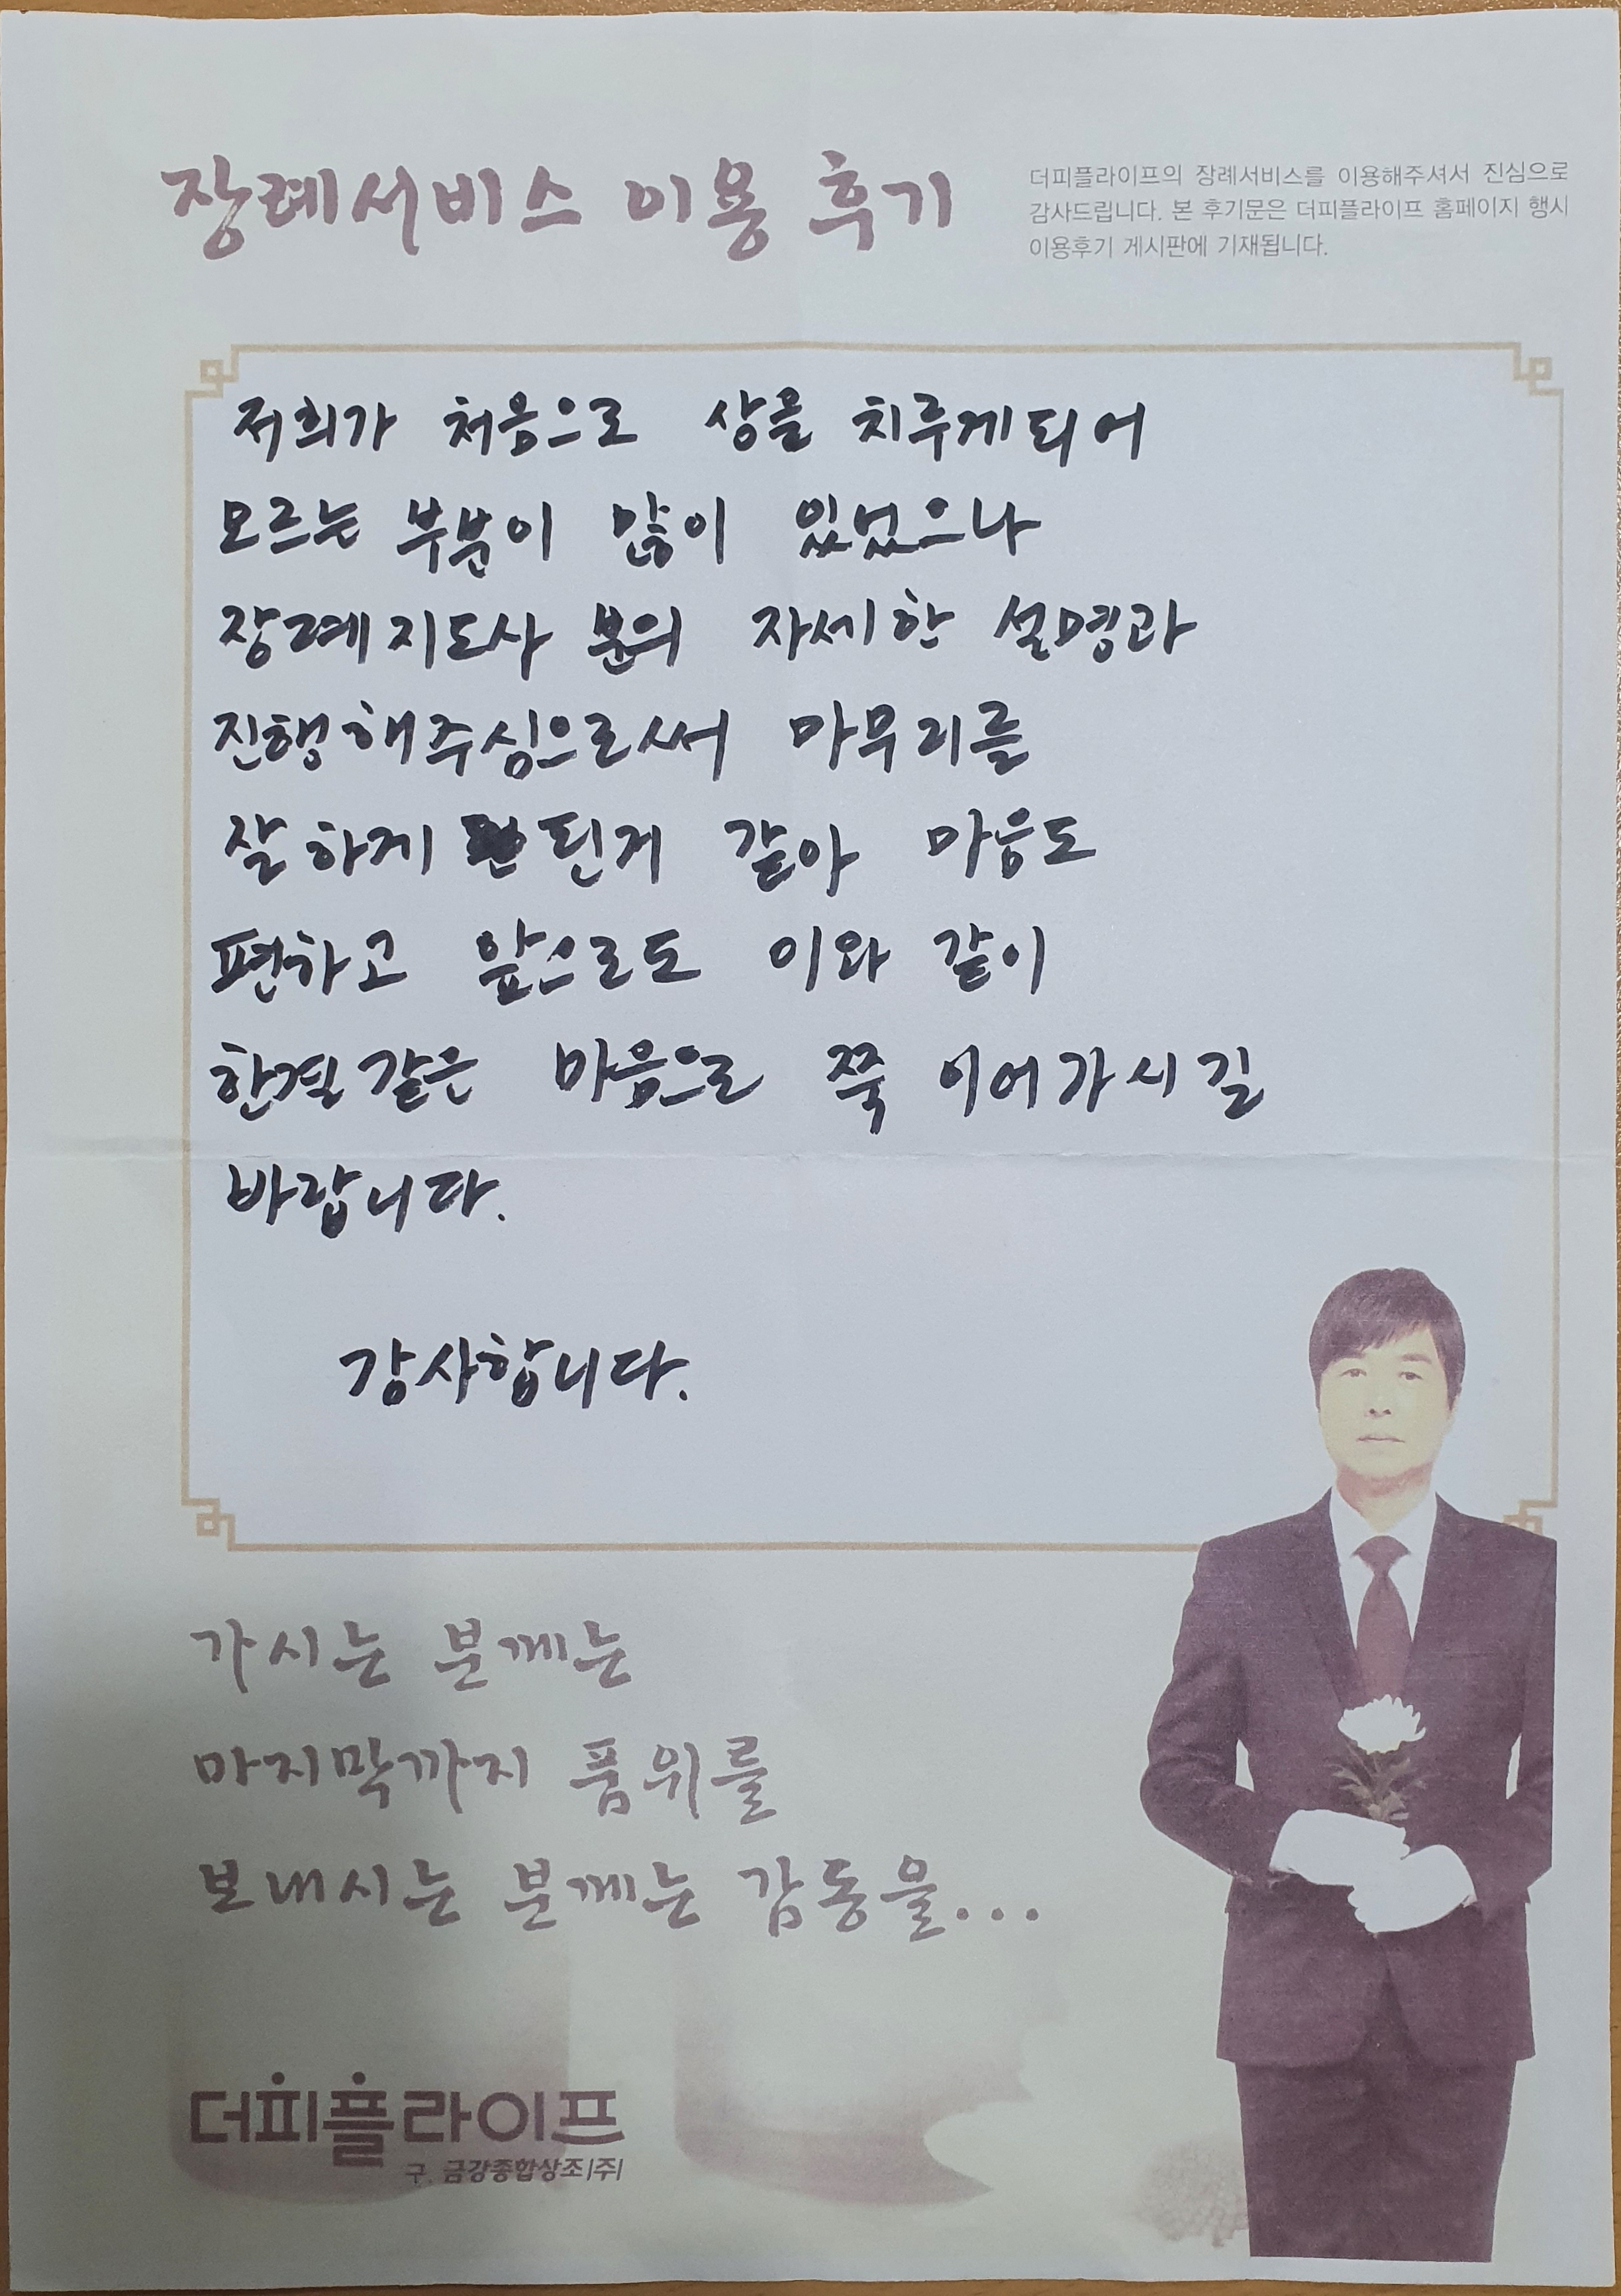 장례서비스 이용 후기
더피플라이프의 장례서비스를 이용해주셔서 진심으로
감사드립니다. 본 후기문은 더피플라이프 홈페이지 행사
이용후기 게시판에 기재됩니다.
저희가 처음으로 상을 치루게되어
모르는 부분이 많이 있었으나
장례지도사 분의 자세한 설명과
진행해주심으로써 마무리를
잘하게 된거 같아 마음도
편하고 앞으로도 이와 같이
한결같은 마음으로 쭉 이어가시길
바랍니다.
감사합니다.
가시는 분께는
마지막까지 품위를
보내시는 분께는 감동을...
더피플라이프
구. 금강종합상조(주)